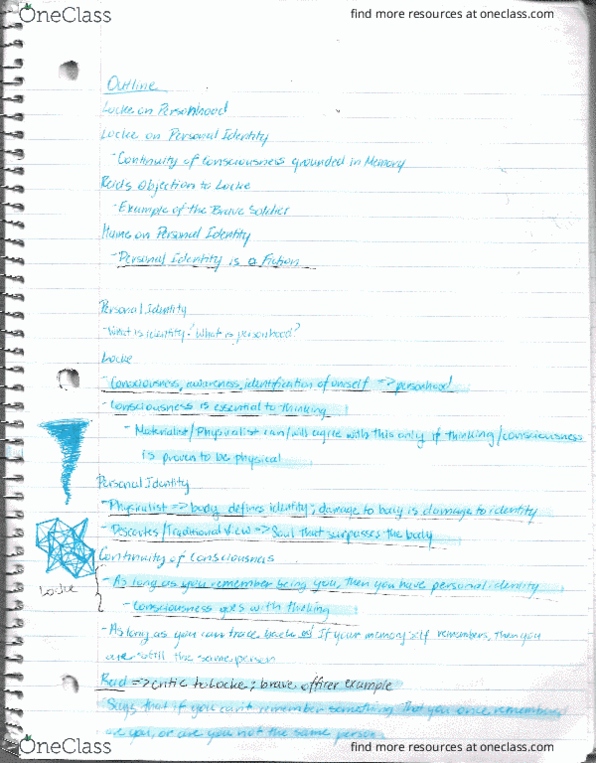 OneClass
find more resources at oneclass.com
Outline
Locke on Personhood
Locke on Personal Identity
- Continuity of consciousness grounded in Memory
Reids Objection to Locke
- Example of the Brave Soldier
Hume on Personal Identity
- Personal Identity is a Fiction
Personal Identity
- What is identity? What is personhood?
Locke
- Consciousness, awareness, identification of oneself => personhood
- Consciousness is essential to thinking
- Materialist/Physicalist can/will agree with this only if thinking/consciousness
is proven to be physical
Personal Identity
- Physicalist => body defines identity; damage to body is damage to identity
- Descartes/Traditional view => Soul that surpasses the body
Continuity of Consciousness
- As long as you remember being you, then you have personal identity
Locke
- Consciousness goes with thinking
- As long as you can trace back If your memory self remembers, then you
are still the same person
Reid => critic to Locke; brave officer example
Says that if you can't remember something that you once remembered
are you, or are you not the same person
OneClass
find more resources at oneclass.com